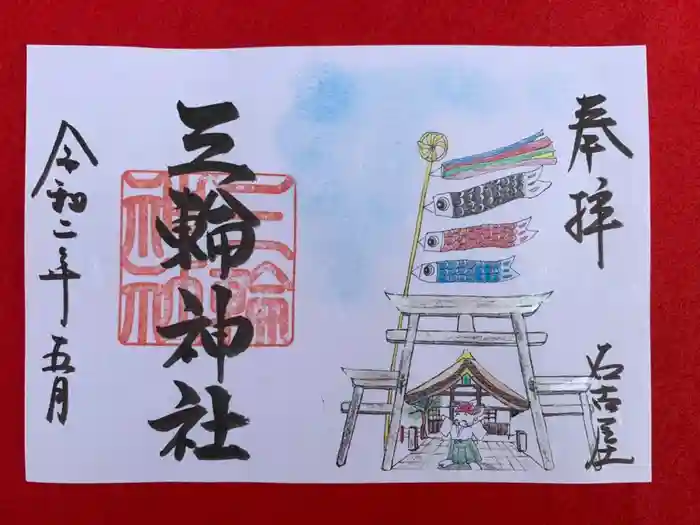 奉拝
名古屋
三輪神社
三輪神社
令和二年五月